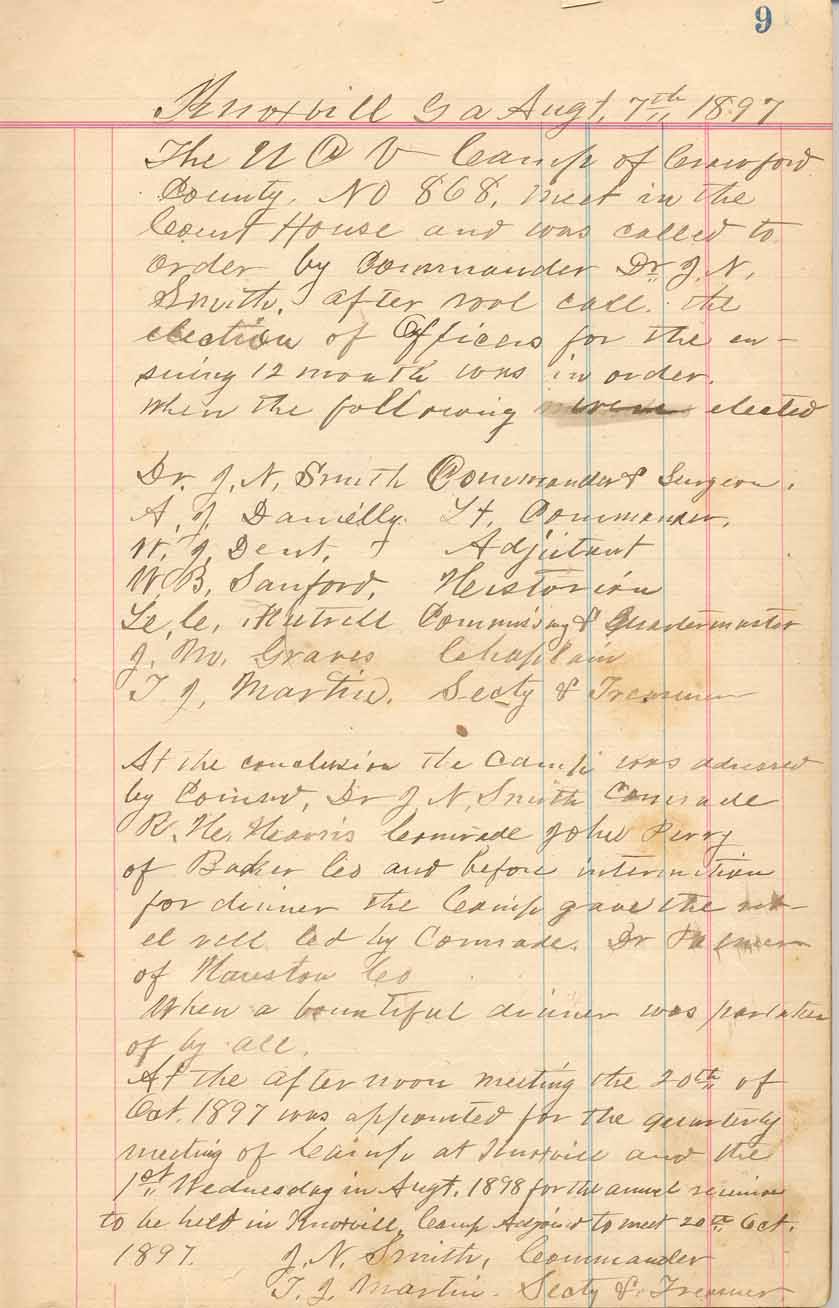 9
Knoxvill Ga Augt. 7th 1897
The U C V Camp of Crawford
County, No 868, meet in the
Court House and was called to
order by Commander Dr. J. N.
Smith, after rool call. the
election of Officers for the en-
suing 12 month was in order.
When the following were elected
Dr. J. N. Smith Commander & Surgeon.
A. J. Danielly Lt. Commander.
W. J. Dent, Adjutant
W. B. Sanford, Historian
C. C. Commissary & Quartermaster
J. M. Graves Chaplain
T J, Martin. Secty & Treasurer
At the conclusion the Camp was adressed
by Dr J N, Smith Comrade
R. H. Harris Comrade John Perry
of Baker Co and before intermition
for dinner the Camp gave the reb-
el yell led by Comrade. Dr
of Houston Co
When a bountiful dinner was partaken
of by all.
At the after noon meeting the 20th of
Oct. 1897 was appointed for the quarterly
meeting of Camp at Knoxvill and the
1st Wednesday in Augt. 1898 for the annul reunion
to be held in Knoxvill, Camp Adjour'd to meet 20th Oct.
1897. J. N. Smith, Commander
T. J. Martin. Secty & Treasurer